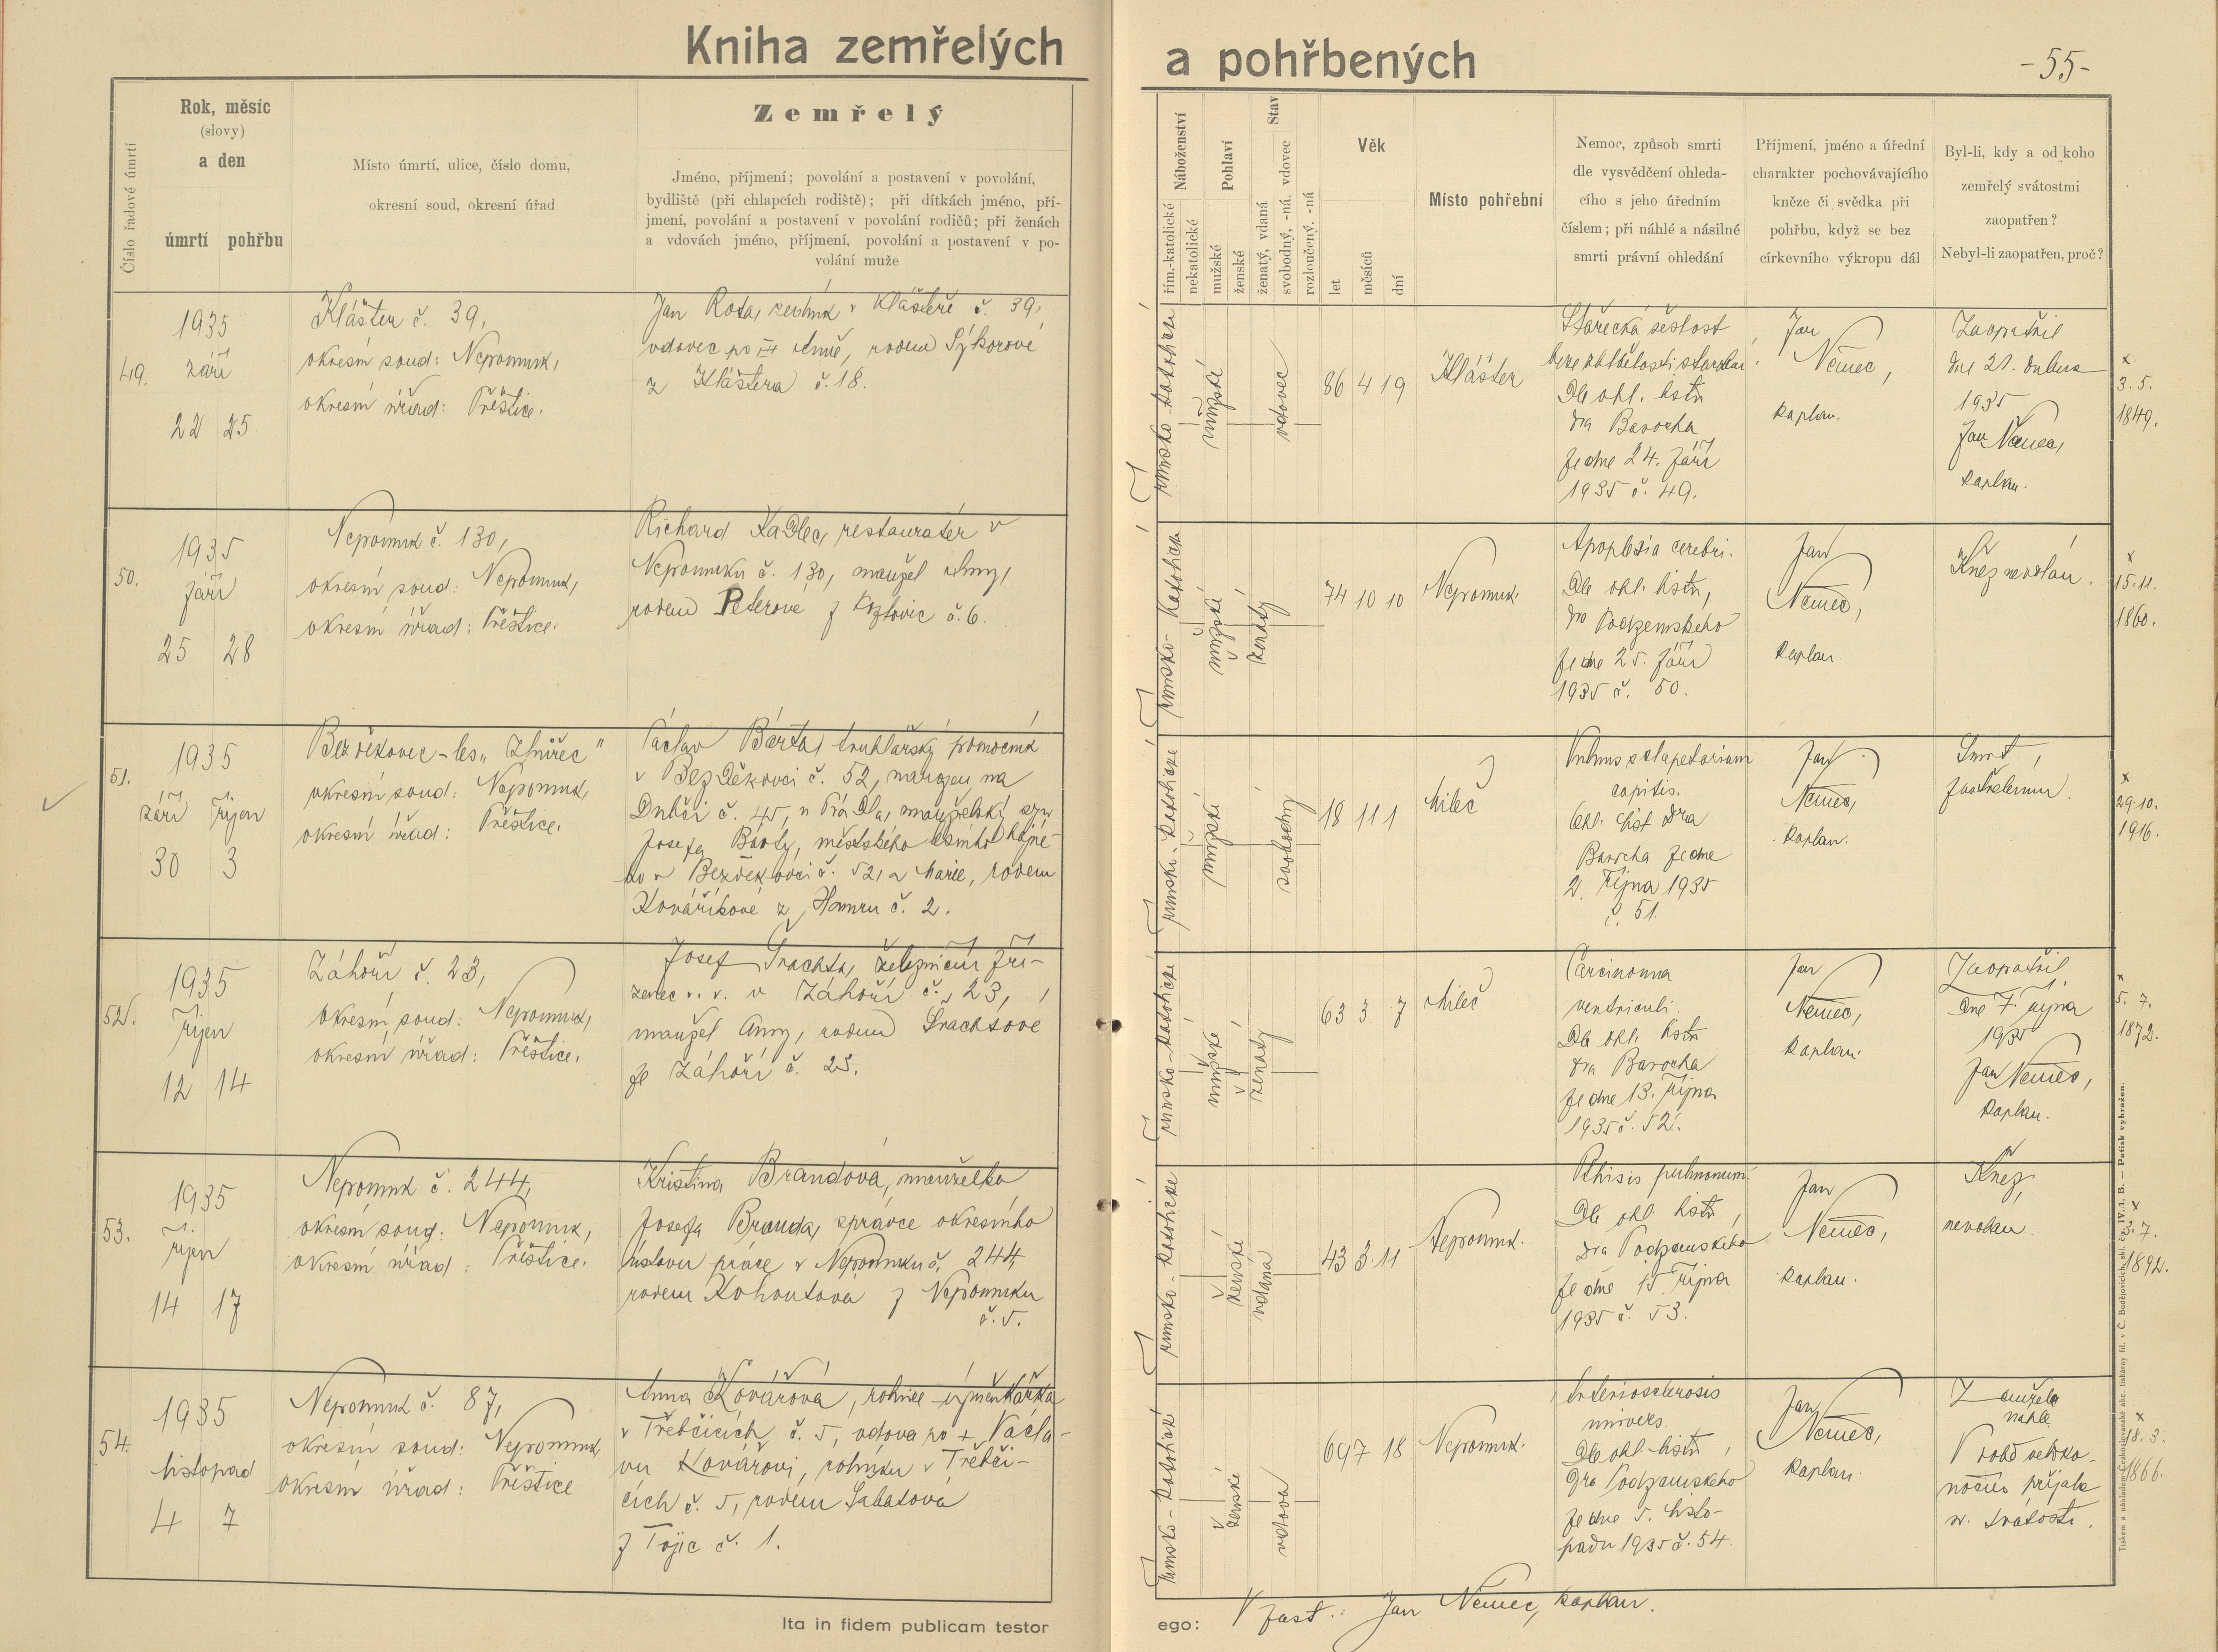 Kniha zemřelých a pohřbených
-55-
Číslo řadové úmrtí
Rok, měsíc
(slovy)
a den
úmrtí pohřbu
Místo úmrtí, ulice, číslo domu,
okresní soud, okresní úřad
Zemřelý
Jméno, příjmení; povolání a postavení v povolání,
bydliště (při chlapcích rodiště); při dítkách jméno, pří-
jmení, povolání a postavení v povolání rodičů; při ženách
a vdovách jméno, příjmení, povolání a postavení v po-
volání muže
Náboženství
řím.-katolické
nekatolické
Pohlaví
mužské
ženské
Stav
ženatý, vdaná
svobodný, -ná, vdovec
rozloučený, -ná
Věk
let
měsíců
dní
Místo pohřební
Nemoc, způsob smrti
dle vysvědčení ohleda-
cího s jeho úředním
číslem; při náhlé a násilné
smrti právní ohledání
Příjmení, jméno a úřední
charakter pochovávajícího
kněze či svědka při
pohřbu, když se bez
církevního výkropu dál
Byl-li, kdy a od koho
zemřelý svátostmi
zaopatřen?
Nebyl-li zaopatřen, proč?
49.
1935
září
22 25
Klášter č. 39,
okresní soud: Nepomuk,
okresní úřad: Přeštice.
Jan Rota, v Klášteře č. 39,
vdovec po III Anně, rodem Sýkorové
z Kláštera č. 18.
římsko-katolické
mužské
vdovec
86 4 19
Klášter
Stařecká sešlost
Dle ohl. listu
dra Barocha
ze dne 24. září
1935 č. 49.
Jan
Němec,
kaplan.
Zaopatřil
dne 21. dubna
1935
Jan Němec,
kaplan.
x
3. 5.
1849.
50.
1935
září
25 28
Nepomuk č. 130,
okresní soud: Nepomuk,
okresní úřad: Přeštice.
Richard Kadlec, restauratér v
Nepomuku č. 130, manžel Anny,
rodem Peterové z Kozlovic č. 6.
římsko-katolické
mužské
ženatý
74 10 10
Nepomuk.
Apoplexia cerebri.
Dle ohl. listu,
dra Podzemského
ze dne 25. září
1935 č. 50.
Jan
Němec,
kaplan
Kněz nevolán.
x
15. 11.
1860.
51.
1935
září říjen
30 3
Bezděkovec - les „Zhůřec"
okresní soud: Nepomuk,
okresní úřad: Přeštice.
Václav Bárta, truhlářský pomocník
v Bezděkovci č. 52, narozen na
Dubči č. 45, u Prádla, manželský syn
Josefa Bárty, městského lesního hajné-
ho v Bezděkovci č. 52, a Marie, rodem
Kovaříkové z Hamru č. 2.
římsko-katolické
mužské
svobodný
18 11 1
Mileč
Vulnus sclopetarium
capitis.
Ohl. list dra
Barocha ze dne
2. října 1935
č. 51.
Jan
Němec,
kaplan.
Smrt
zastřelením.
x
29. 10.
1916.
52.
1935
říjen
12 14
Záhoří č. 23,
okresní soud: Nepomuk,
okresní úřad: Přeštice.
Josef Šrachta, železniční zří-
zenec v. v. v Záhoří č. 23,
manžel Anny, rodem Šrachtové
ze Záhoří č. 25.
římsko-katolické
mužské
ženatý
63 3 7
Mileč
Carcinoma
ventriculi.
Dle ohl. listu
dra Barocha
ze dne 13. října
1935 č. 52.
Jan
Němec,
kaplan.
Zaopatřil
dne 7. října
1935
Jan Němec,
kaplan.
x
5. 7.
1872.
53.
1935
říjen
14 17
Nepomuk č. 244,
okresní soud: Nepomuk,
okresní úřad: Přeštice.
Kristina Brandová, manželka
Josefa Branda, správce okresního
ústavu práce v Nepomuku č. 244,
rodem Kohoutová z Nepomuku
č. 5.
římsko-katolické
ženské
vdaná
43 3 11
Nepomuk.
Pthisis pulmonum.
Dle ohl. listu,
dra Podzemského
ze dne 15. října
1935 č. 53.
Jan
Němec,
kaplan.
Kněz
nevolán.
x
3. 7.
1892.
54.
1935
listopad
4 7
Nepomuk č. 87,
okresní soud: Nepomuk
okresní úřad: Přeštice
Anna Kovářová, rolnice-výměnkářka
v Třebčicích č. 5, vdova po + Václa-
vu Kovářovi, rolníku v Třebči-
cích č. 5, rodem Sabatová
z Tojic č. 1.
římsko-katolické
ženské
vdova
69 7 18
Nepomuk.
Arteriosclerosis
univers.
Dle ohl. listu,
dra Podzemského
ze dne 5. listo-
padu 1935 č. 54.
Jan
Němec,
kaplan.
Zemřela
náhle
V době veliko-
noční přijala
sv. svátosti.
x
18. 3.
1866.
Ita in fidem publicam testor ego:
V zast.: Jan Němec, kaplan.